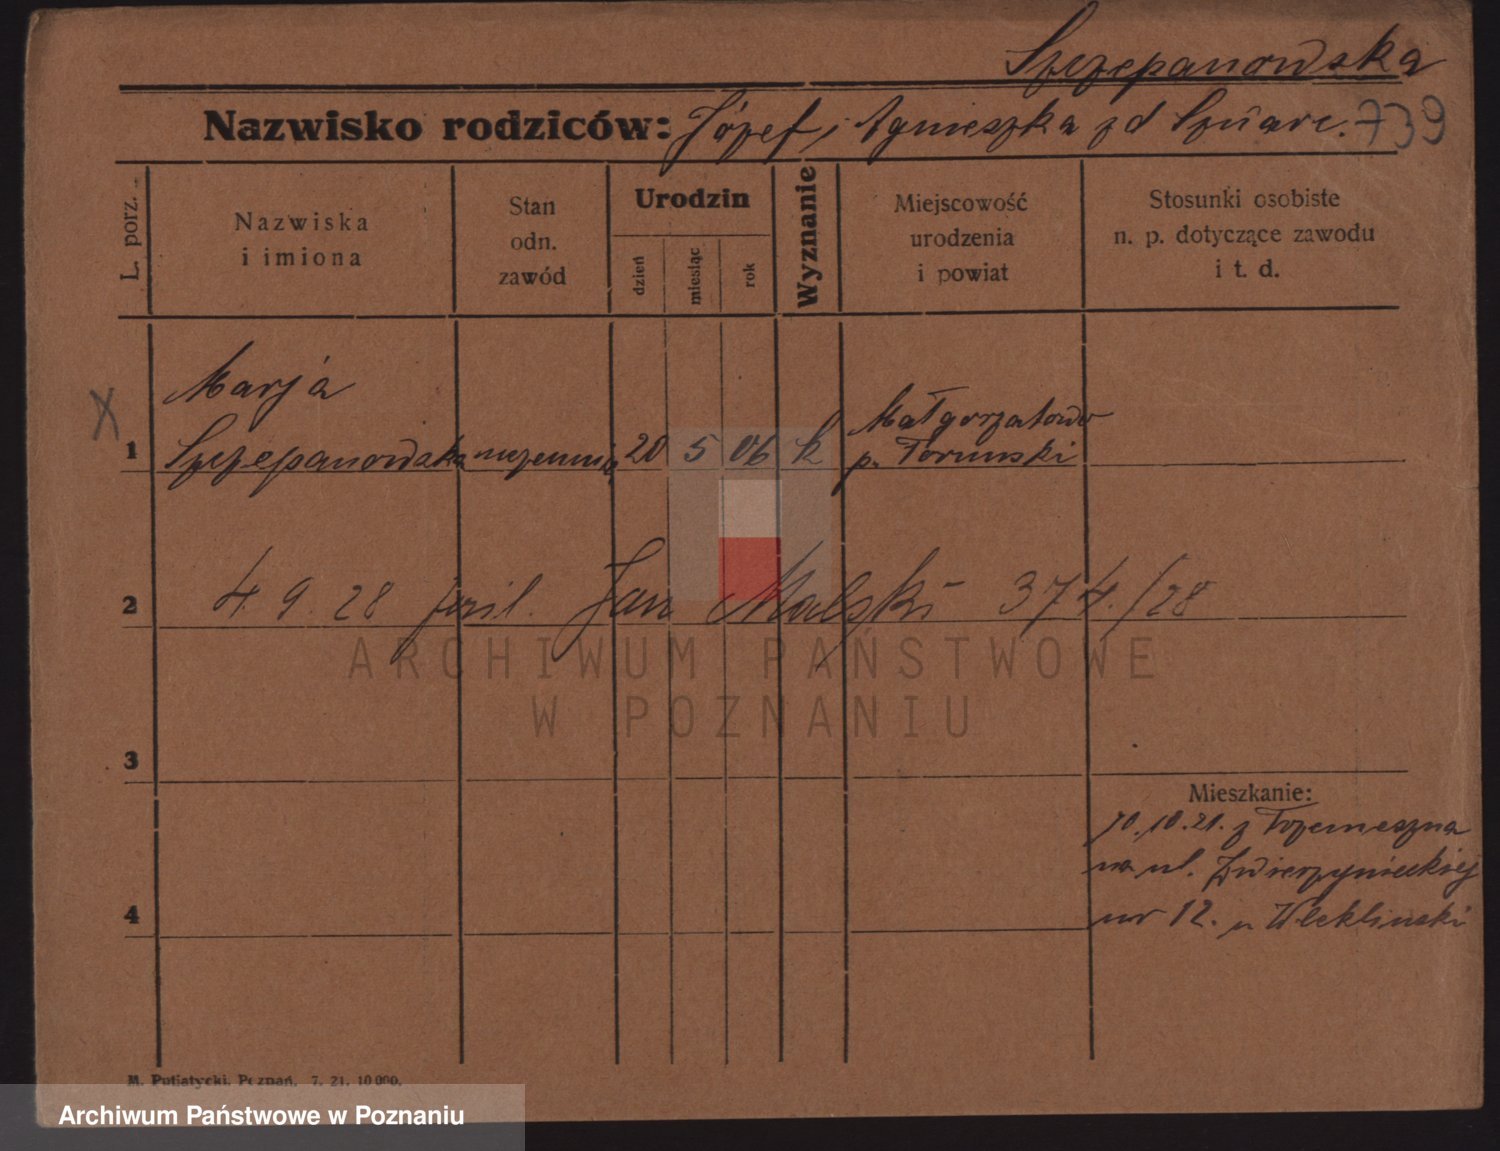 Szczepanowska
Nazwisko rodziców: Józef i Agnieszka zd Szwarc. 739
L. porz.
Nazwiska
i imiona
Stan
odn.
zawód
Urodzin
dzień
miesiąc
rok
Wyznanie
Miejscowość
urodzenia
i powiat
Stosunki osobiste
n. p. dotyczące zawodu
i t. d.
X
1
Marja
Szczepanowska
20 5 06 k
Małgorzatowo
p. Toruński
2
4. 9. 28 Jan Malski 374./28
ARCHIWUM PAŃSTWOWE
W POZNANIU
3
Mieszkanie:
10.10.21. z Trzemeszna
na ul. Zwierzynieckiej
nr 12. u Wleklinski
4
M. Putiatycki, Poznań. 7. 21. 10000.
Archiwum Państwowe w Poznaniu